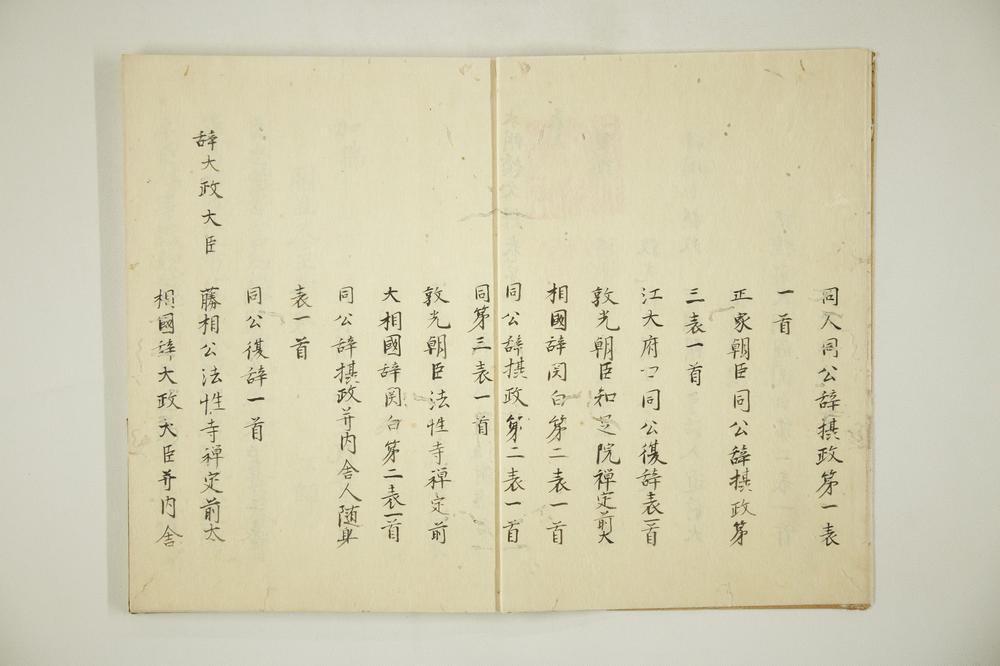 同人同公辞摂政第一表
一首
正家朝臣同公辞摂政第
三表一首
江大府卿同公復辞表一首
敦光朝臣知足院禅定前大
相國辞関白第二表一首
同公辞摂政第二表一首
同第三表一首
敦光朝臣法性寺禅定前
大相國辞関白第二表一首
同公辞摂政并内舎人随身
表一首
同公復辞一首
辞大政大臣
藤相公法性寺禅定前太
相國辞大政大臣并内舎